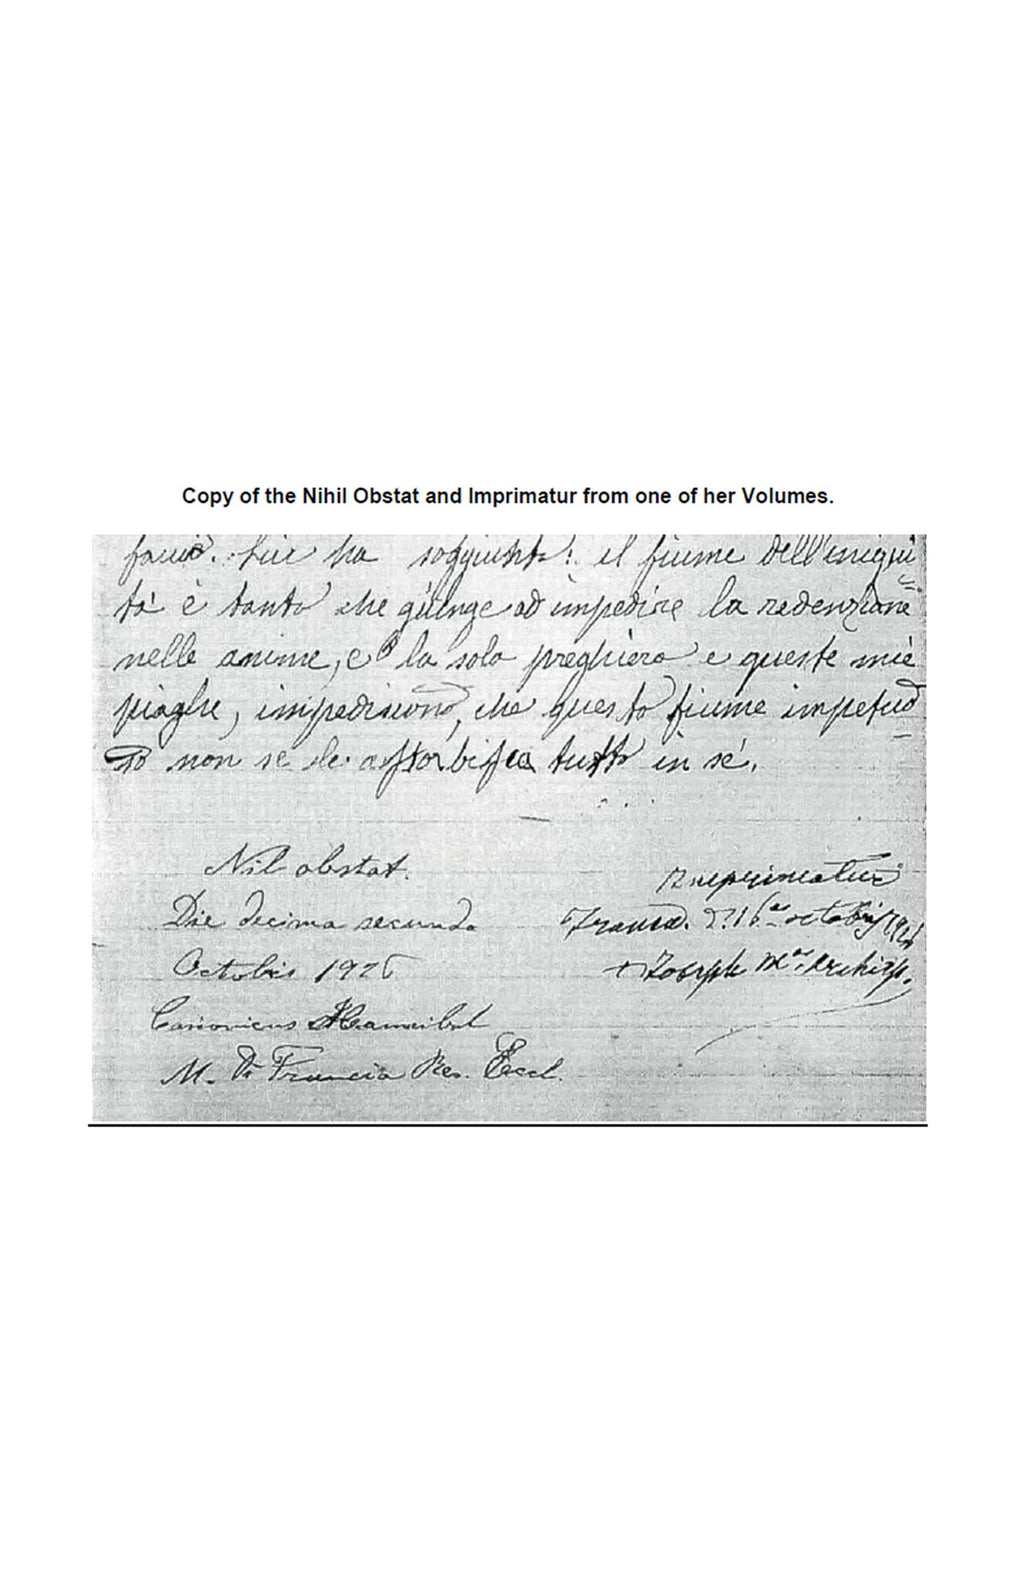 Copy of the Nihil Obstat and Imprimatur from one of her Volumes.
ha soggiunto: il fiume dell'iniqui
tà è tanto che giunge ad impedire la redenzione
nelle anime, e la sola preghiera e queste mie
piaghe, impediscono, che questo fiume impetuo
so non se le assorbisca tutto in sé.
Nil obstat.
Die decima secunda
Octobris 1926
Canonicus Hannibal
M. Di Francia Rev. Eccl.
Imprimatur
octobris
+ Joseph M. Archiep.